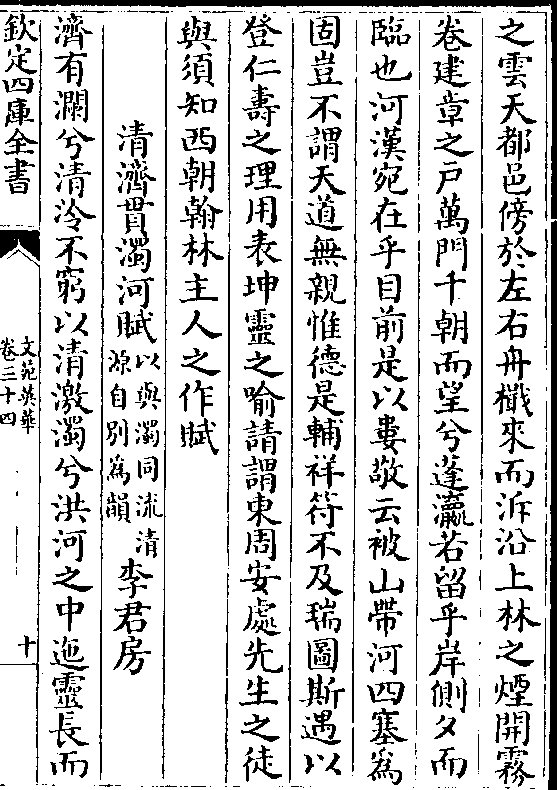 之雲天都邑傍於左右舟檝來而泝沿上林之煙開霧
卷建章之戸萬門千朝而望兮蓬瀛若留乎岸側夕而
臨也河漢宛在乎目前是以婁敬云被山帶河四塞為
固豈不謂天道無親惟德是輔祥符不及瑞圖斯遇以
登仁壽之理用表坤靈之喻請謂東周安處先生之徒
與須知西朝翰林主人之作賦
清濟貫濁河賦以與濁同流清源自別為韻 李君房
濟有瀾兮清泠不窮以清激濁兮洪河之中迤靈長而
欽定四庫全書
文苑英華
卷三十四
十